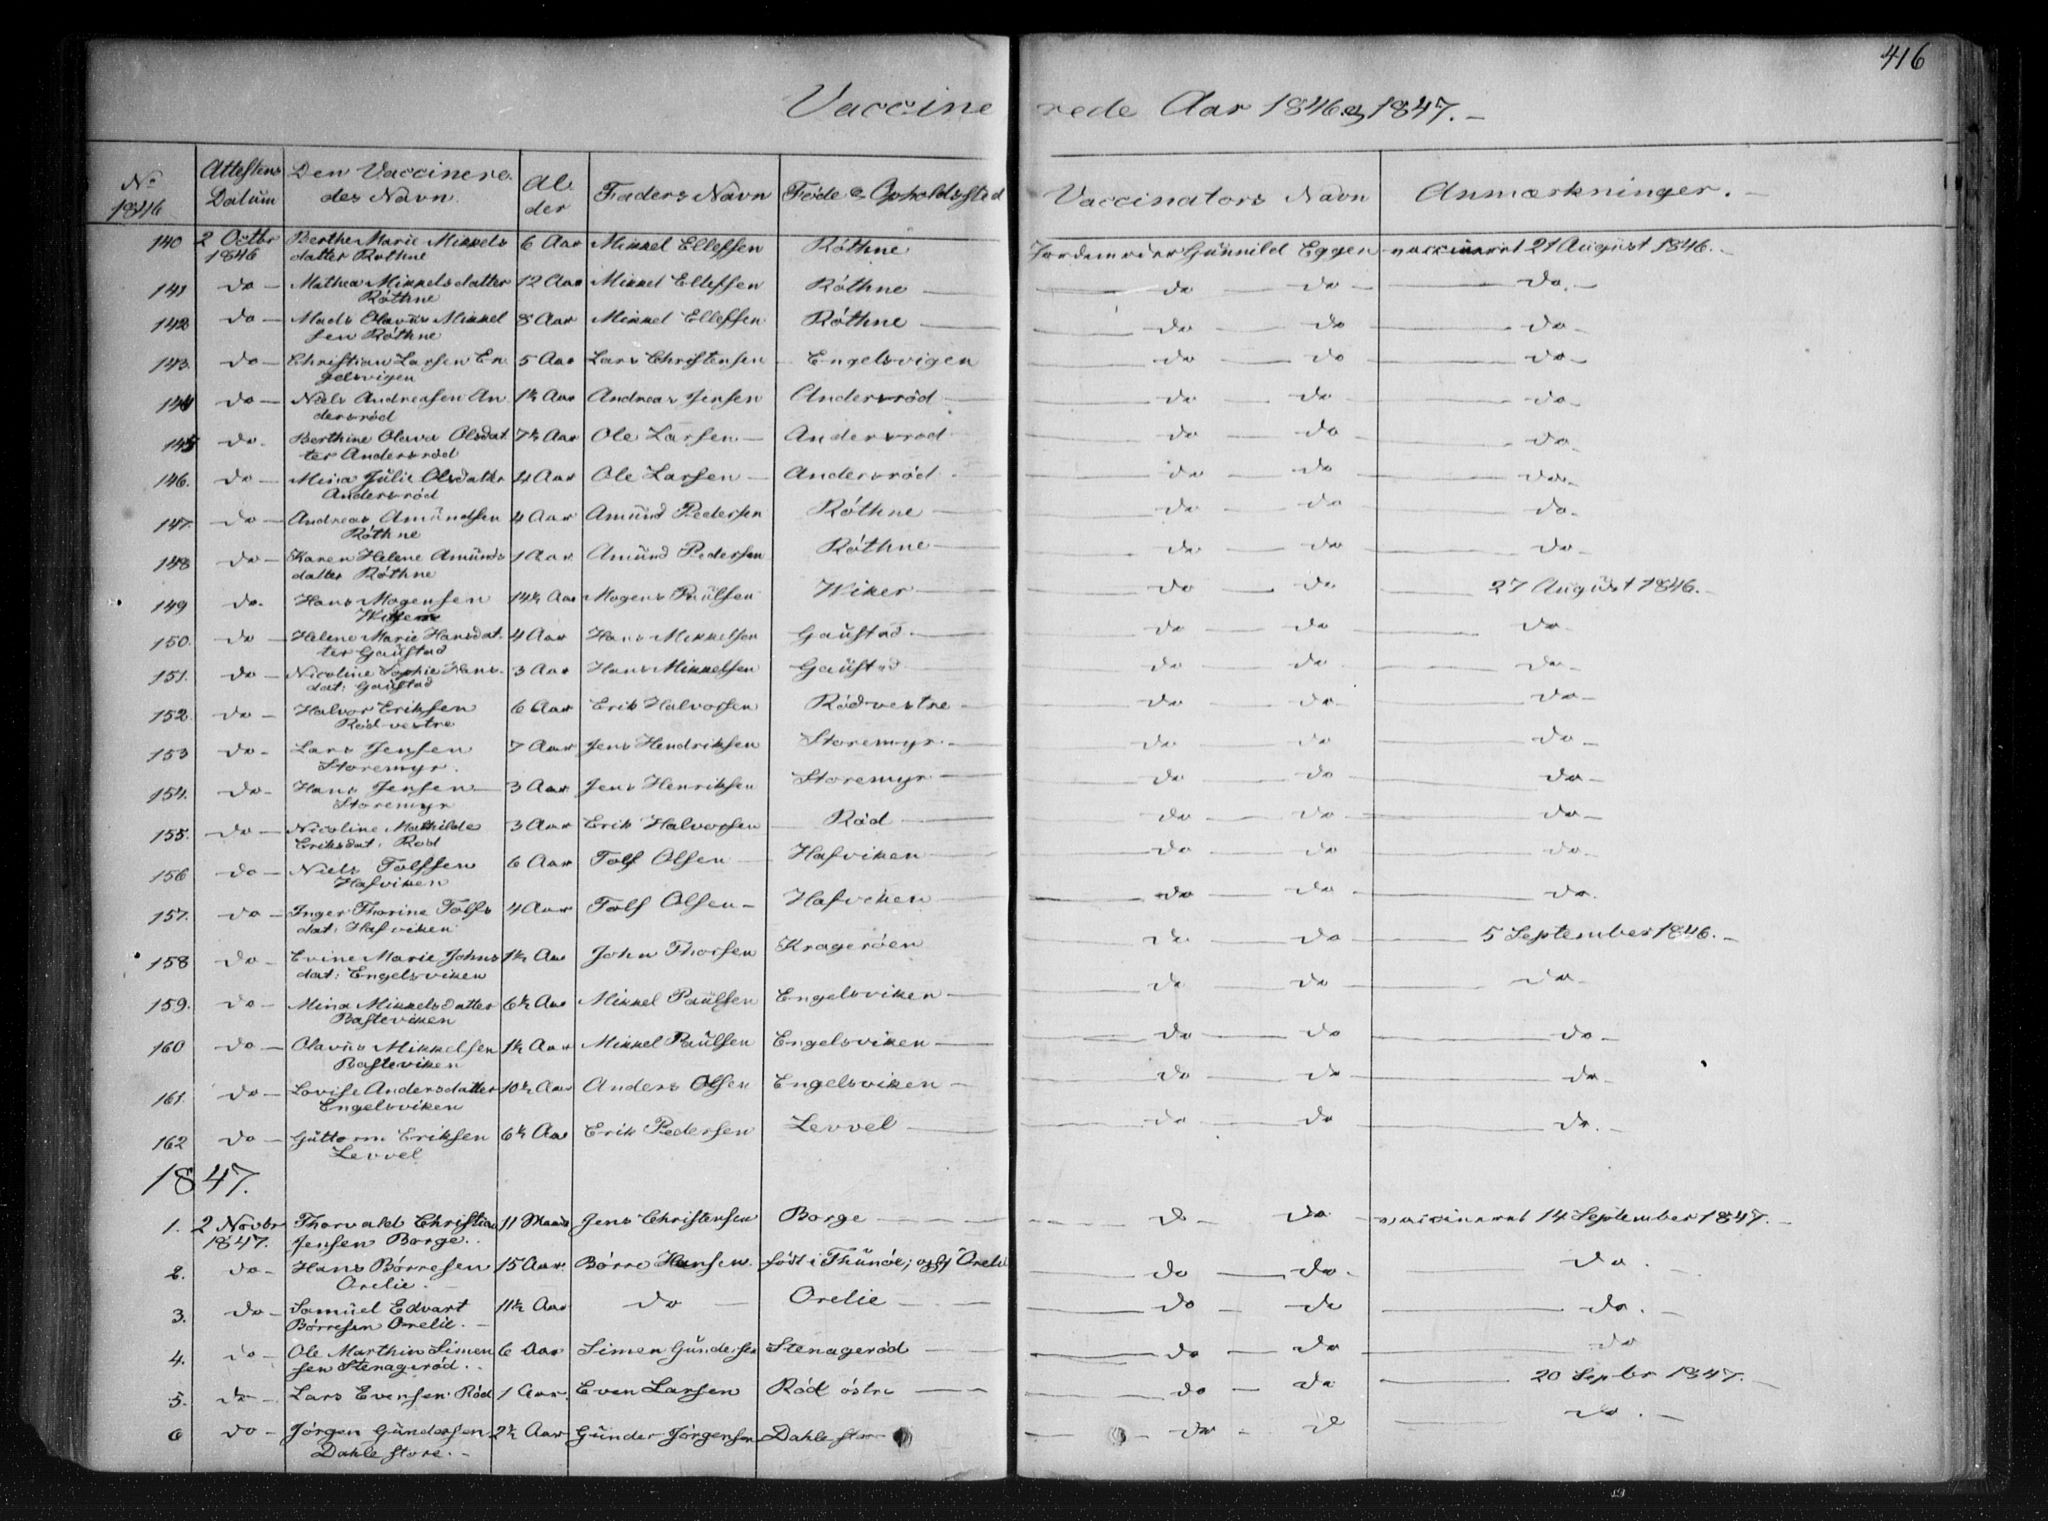 416
Vaccinerede Aar 1846 og 1847.-
No 1846 | Attestens Datum | Den Vaccinere- des Navn. | Al der | Faders Navn | Føde & Opholdssted | Vaccinators Navn | Anmærkninger.-
140 2 Octbr Berthe Marie Mikkels 6 Aar Mikkel Ellefsen Röthne Jordemoder Gunnild Eggen vaccineret 21 August 1846.-
1846 datter Röthne
141 do - Mathea Mikkelsdatter 12 Aar Mikkel Ellefsen Röthne - do - do - do.-
Röthne
142 do - Mads Olavus Mikkel 8 Aar Mikkel Ellefsen Röthne - do - do - do -
sen Röthne
143. do - Christian Larsen En 5 Aar Lars Christensen Engelsvigen - do - do - do -
gelsvigen
144 do - Niels Andreasen An 1½ Aar Andreas Jensen Andersröd - do - do - do -
dersröd
145 do. Berthine Olava Olsdat 7½ Aar Ole Larsen - Andersröd - do - do - do -
ter Andersröd
146. do - Mina Julie Olsdatter 4 Aar Ole Larsen - Andersröd - do - do - do -
Andersröd
147. do - Andreas Amundsen 4 Aar Amünd Pedersen Röthne - do - do - do -
Röthne
148 do - Karen Helene Amünds 1 Aar Amünd Pedersen Röthne - do - do - do -
datter Röthne
149 do. Hans Mogensen 14½ Aar Mogens Paülsen Wiker - do - do - 27 August 1846.-
150. do - Helene Marie Hansdat 4 Aar Hans Mikkelsen Gaustad - do - do - do -
ter Gaustad
151. do - Nicoline Sophie Hans- 3 Aar Hans Mikkelsen Gaustad - do - do - do -
dat: Gaustad
152 do - Halvor Eriksen 6 Aar Erik Halvorsen Röd vestre - do - do - do -
Röd vestre
153 do - Lars Jensen 7 Aar Jens Hendriksen Storemyr - do - do - do -
Storemyr.
154. do - Hans Jensen 3 Aar Jens Henriksen Storemyr - do - do - do -
Storemyr
155. do - Nicoline Mathilde 3 Aar Erik Halvorsen Röd - do - do - do -
Eriksdat: Röd
156 do - Niels Tolfsen 6 Aar Tolf Olsen Hafviken - do - do - do -
Hafviken
157. do - Inger Thorine Tolfs 4 Aar Tolf Olsen - Hafviken - do - do - do.
dat: Hafviken
158 do - Evine Marie Johns 1½ Aar John Thorsen Kragerøen - do - do - 5 September 1846.-
dat: Engelsviken
159. do - Mina Mikkelsdatter 6½ Aar Mikkel Paülsen Engelsviken - do - do - do -
Basteviken
160 do - Olavüs Mikkelsen 1½ Aar Mikkel Paülsen Engelsviken - do - do - do -
Basteviken
161. do - Lovise Andersdatter 10½ Aar Anders Olsen Engelsviken - do - do - do -
Engelsviken
162 do - Güttorm Eriksen 6½ Aar Erik Pedersen Levvel - do - do - do.-
Levvel
1847.
1. 2 Novbr Thorvald Christian 11 Maan Jens Christensen Borge - do - do vaccineret 14 September 1847.-
1847. Jensen Borge.
2. do - Hans Börresen 15 Aar Börre Hansen født i Thunöe; Orelie - do - do - do.-
Orelie.-
3. do - Samüel Edvart 11½ Aar do - Orelie - do - do - do.-
Börresen Orelie.-
4. do - Ole Marthin Simen 6 Aar Simen Gündersen Stenageröd - do - do - do
sen Stenageröd.
5. do - Lars Evensen Röd 1 Aar. Even Larsen Röd östre - do - do - 20 Septbr 1847.-
6 do - Jörgen Gündersen 2½ Aar Günder Jörgensen Dahle store - do - do - do.-
Dahle store.-